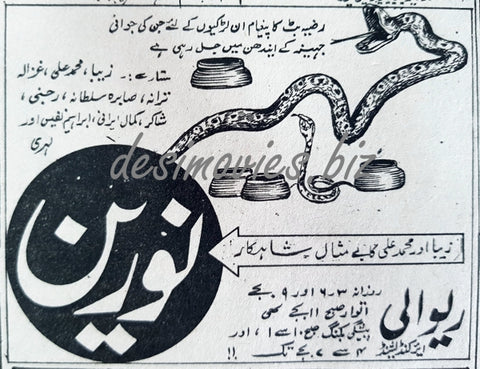 رضیہ بٹ کا پیغام ان لڑکیوں کے لئے جن کی جوانی
جہیز کے ایندھن میں جل رہی ہے
ستارے :۔ زیبا، محمد علی، غزالہ
ترانہ، صابرہ سلطانہ، رجنی،
شاکر، کمال ایرانی، ابراہیم نفیس اور
لہری
desimovies.biz
نورین
زیبا اور محمد علی کا بے مثال شاہکار
ریوالی
ایئرکنڈیشنڈ
روزانہ ۳، ۶ اور ۹ بجے
اتوار صبح ۱۱ بجے بھی
پیشگی بکنگ صبح ۱۰ سے ۱، اور
۴ سے ۷ بجے تک !!